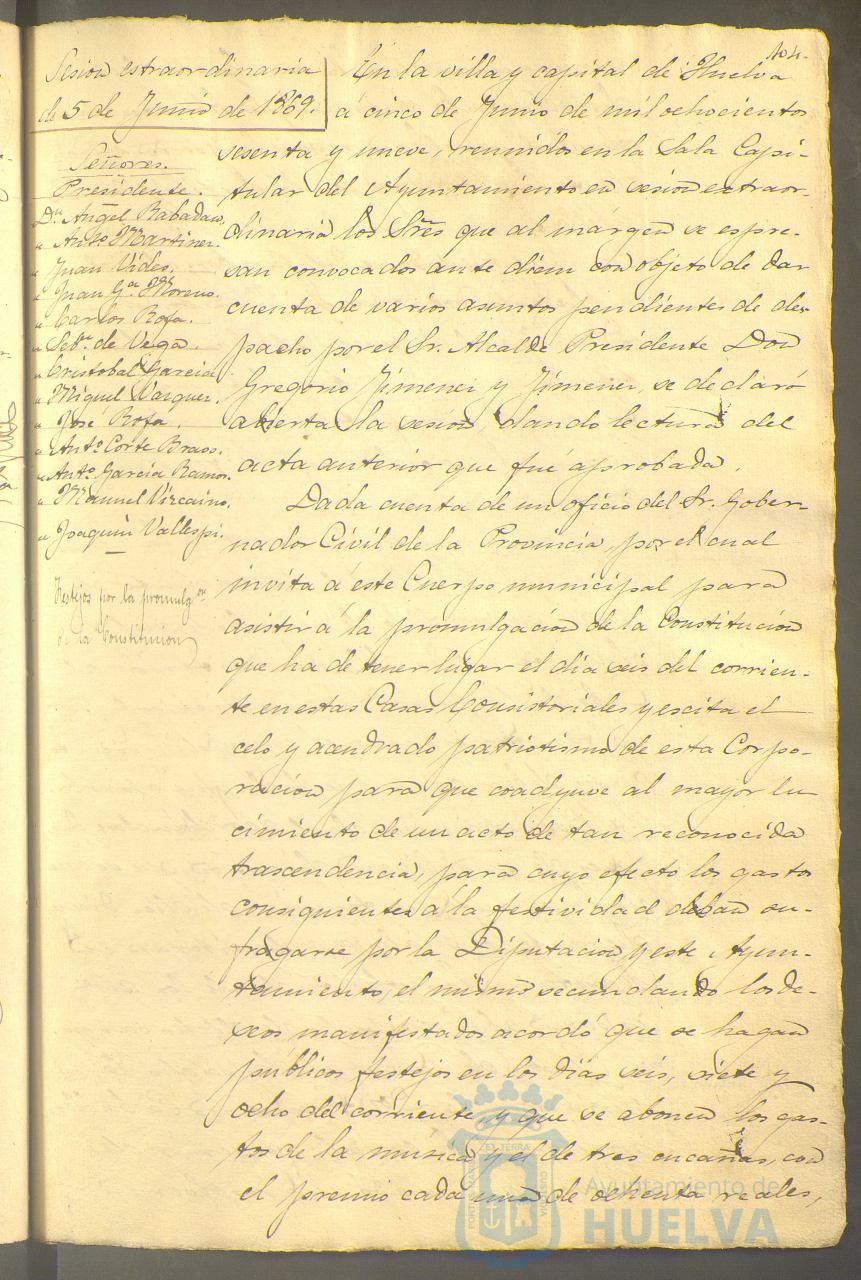 104.
Sesion estraordinaria
de 5 de Junio de 1869.
Señores.
Presidente.
Dn. Angel Rabadan.
" Anto. Martinez.
" Juan Vides.
" Juan Ga. Moreno.
" Carlos Rofa.
" Sebn. de Vega.
" Cristobal Garcia
" Miguel Vazquez.
" José Rofa.
" Anto. Corte Bravo.
" Anto. Garcia Ramos.
" Manuel Vizcaino.
" Joaquin Vallespi.
Festejos por la promulgon
de la Constitucion
En la villa y capital de Huelva
á cinco de Junio de mil ochocientos
sesenta y nueve, reunidos en la Sala Capi-
tular del Ayuntamiento en sesion extraor-
dinaria los Sres que al márgen se espre-
san convocados ante diem con objeto de dar
cuenta de varios asuntos pendientes de des-
pacho por el Sr. Alcalde Presidente Don
Gregorio Jimenez y Jimenez, se declaró
abierta la sesion, dando lectura del
acta anterior que fué aprobada.
Dada cuenta de un oficio del Sr. Gober-
nador Civil de la Provincia, por el cual
invita á este Cuerpo municipal para
asistir á la promulgacion de la Constitucion
que ha de tener lugar el dia seis del corrien-
te en estas Casas Consistoriales y escita el
celo y acendrado patriotismo de esta Corpo-
racion para que coadyuve al mayor lu-
cimiento de un acto de tan reconocida
trascendencia, para cuyo efecto los gastos
consiguientes á la festividad deban su-
fragarse por la Diputacion y este Ayun-
tamiento, el mismo secundando los de-
seos manifestados acordó que se hagan
públicos festejos en los dias seis, siete y
ocho del corriente, y que se abonen los gas-
tos de la musica y el de tres cucañas, con
el premio cada una de ochenta reales,
Ayuntamiento de
HUELVA